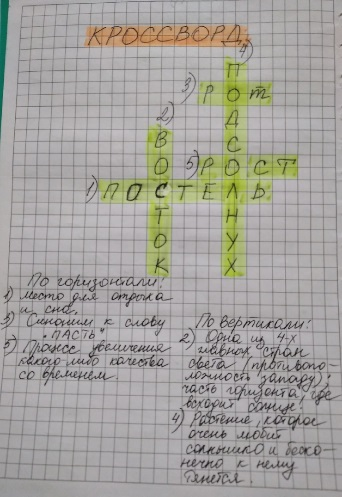 КРОССВОРД.
4)
П
3) Р О Т
Д
2) С
В О
О 5) Р О С Т
1) П О С Т Е Л Ь
Т Н
О У
К Х
По горизонтали:
1) место для отдыха
и сна.
3) Синоним к слову
"ПАСТЬ"
5) Процесс увеличения
какого-либо качества
со временем.
По вертикали:
2) Одна из 4-х
главных стран
света (противопо-
ложность западу);
часть горизонта, где
всходит солнце.
4) Растение, которое
очень любит
солнышко и беско-
нечно к нему
тянется.